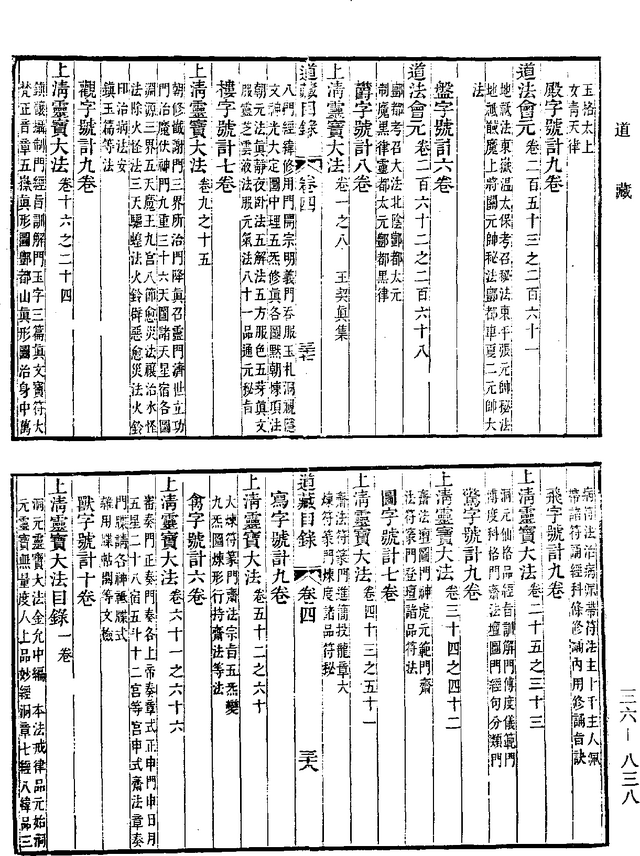 道藏
玉格太上
女青天律
殿字號計九卷
道法會元 卷二百五十三之二百六十一
地祇法東嶽溫太保考召秘法東平張元帥秘法
地祇馘魔上將關元帥秘法酆都車夏二元帥大
法
盤字號計六卷
道法會元 卷二百六十二之二百六十八
酆都考召大法北陰酆都大元
制魔黑律靈都太元酆都黑律
鬱字號計八卷
上淸靈寶大法 卷一之八 王契眞集
道藏目錄 卷四 三七
八門經緯修用門開宗明義門吞服玉札洞視隱
文神光大定圖中理五炁修眞各圖默朝煉項法
朝元法眞靜夜臥法五解法五方服色五芽眞文
服靈芝雲液法服元氣法八十一品通元秘旨
樓字號計七卷
上淸靈寶大法 卷九之十五
齋修懺謝門三界所治門降眞召靈門濟世立功
門治魔伏神門九重三十六天圖諸天星宿各圖
洞源三界五天魔王九宮八節愈災法禳治水怪
法除火怪法三天驅蝗法火鈴辟惡愈災法火鈴
印治病法安
鎮玉篇等法
觀字號計九卷
上淸靈寶大法 卷十六之二十四
鎮禳攝制門經旨訓解門玉字三篇眞文寶符大
梵正音章五嶽眞形圖酆都山眞形圖治身中萬
病符法治病架帶符法主上千主人佩
帶諸符誦經科條修誦內用修誦音訣
飛字號計九卷
上淸靈寶大法 卷二十五之三十三
洞元仙格品經旨訓解門傳度儀範門
博度科格門齋法壇圖門經句分類門
驚字號計九卷
上淸靈寶大法 卷三十四之四十二
齋法壇圖門神虎元範門齋
法符篆門登壇諸品符法
圖字號計七卷
上淸靈寶大法 卷四十三之五十一
齋法符篆門進簡投龍章大
煉符篆門煉度諸品符秘
道藏目錄 卷四 三八
寫字號計九卷
上淸靈寶大法 卷五十二之六十
大煉符篆門齋法宗旨五炁變
九炁圖煉形行持齋法等法
禽字號計六卷
上淸靈寶大法 卷六十一之六十六
齋奏門正奏門奏各上帝奏章式正申門申日月
五星二十八宿五斗十二宮等宮申式齋法章奏
門牒請各神祇牒式
雜用牒帖關等文檢
獸字號計十卷
上淸靈寶大法目錄 一卷
洞元靈寶大法金允中編 本法戒律品元始洞
元靈寶無量度人上品妙經洞章七經八緯品三
三六—八三八